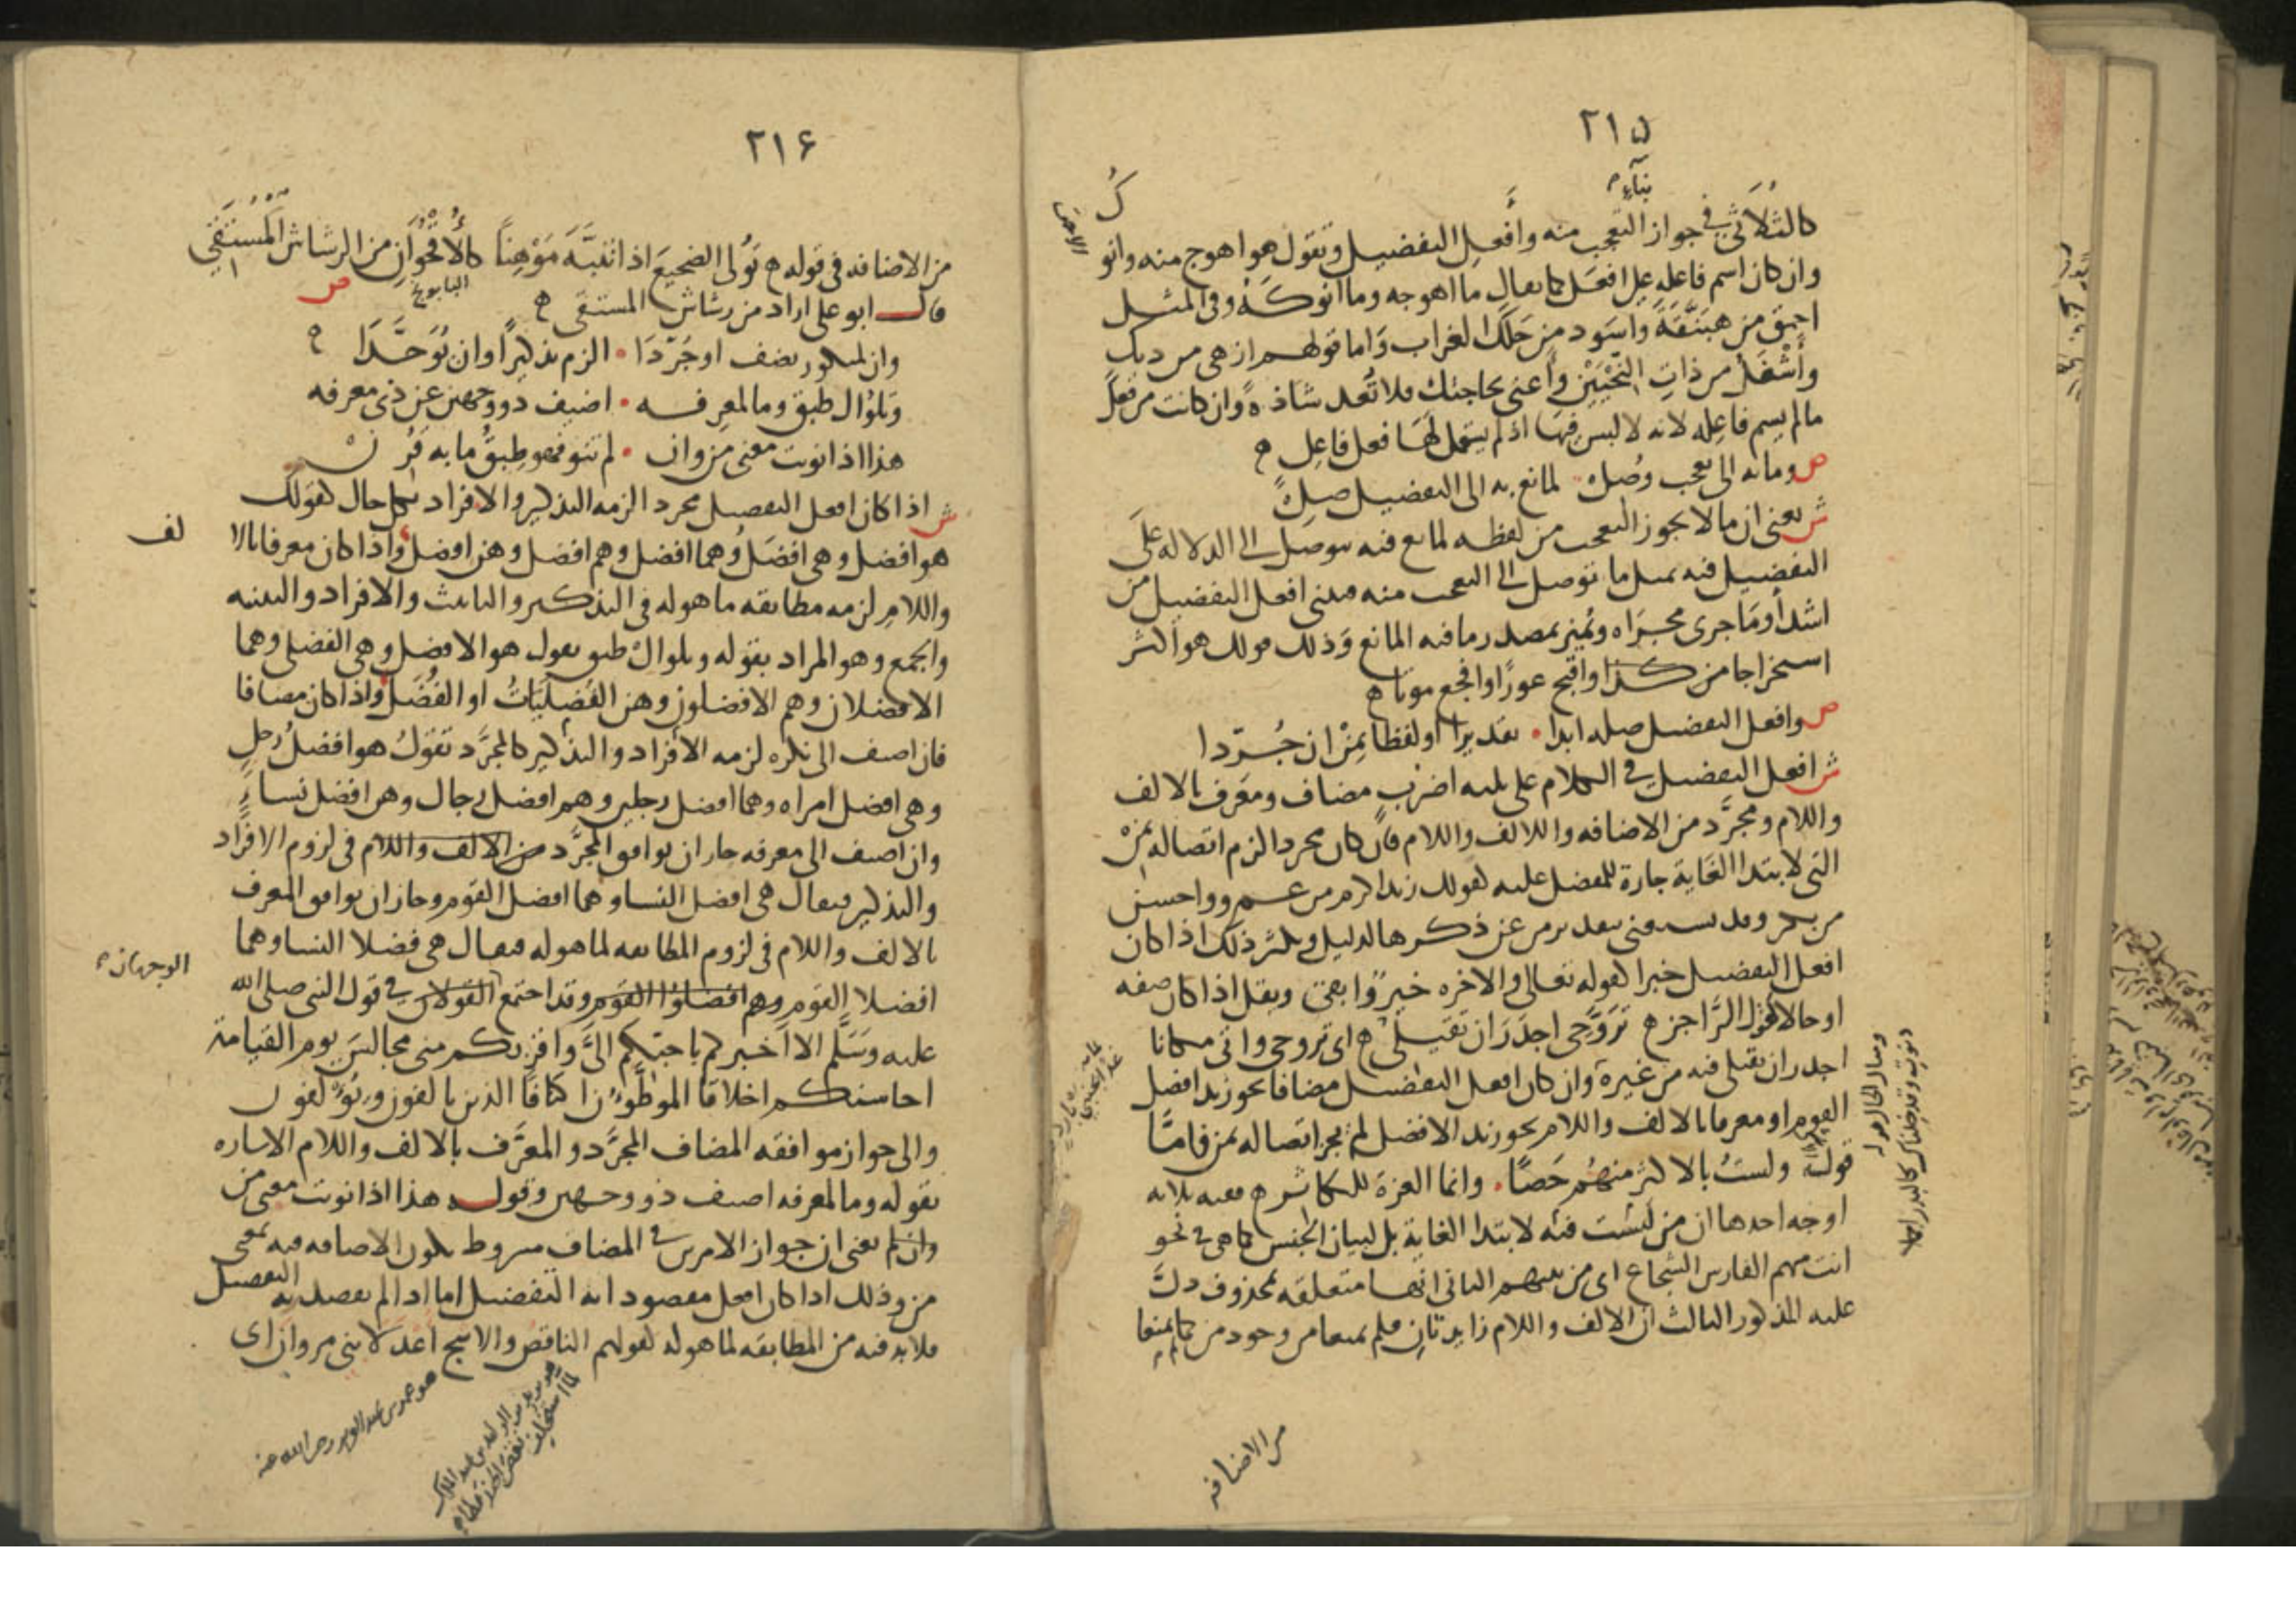 ٢١۵
كالثُلاثي في جواز التعجب منه وأفعل التفضيل وتقول هو اهوج منه وانوك
بناء
وان كان اسم فاعله على افعل كما يقال ما اهوجه وما انوكه وفي المثل
احمق من هبنقة واسود من حلك الغراب واما قولهم ازهى من ديك
وأشغل من ذات النحيين وأعنى بحاجتك فلا تعد شاذة وان كانت من فعل
ما لم يسم فاعله لانه لا لبس فيها اذ لم يستعمل لها فعل فاعل
ص وما به الى تعجب وصل لمانع به الى التفضيل صل
ش يعني ان ما لا يجوز التعجب من لفظه لمانع فيه يتوصل الى الدلالة على
التفضيل فيه بمثل ما توصل الى التعجب منه فيبنى افعل التفضيل من
اشد أو ما جرى مجراه ويميز بمصدر ما فيه المانع وذلك قولك هو اكثر
استخراجا من كذا واقبح عورا وافجع موتا
ص وافعل التفضيل صله ابدا تقديرا أو لفظا بمن ان جردا
ش افعل التفضيل في الكلام على ثلثه اضرب مضاف ومعرف بالالف
واللام ومجرد من الاضافه والالف واللام فان كان مجردا لزم اتصاله بمن
التي لابتدا الغاية جارة للمفضل عليه كقولك زيد اكرم من عمرو واحسن
من بكر وقد يستغنى بتقدير من عن ذكرها لدليل ويكثر ذلك اذا كان
افعل التفضيل خبرا كقوله تعالى والاخره خير وابقى ويقل اذا كان صفه
او حالا كقول الراجز تروحي اجدر ان تقيلي اي تروحي واتي مكانا
اجدر ان تقيلي فيه من غيره وان كان افعل التفضيل مضافا نحو زيد افضل
القوم او معرفا بالالف واللام نحو زيد الافضل لم يجز اتصاله بمن فاما
قوله ولست بالاكثر منهم حصا وانما العزة للكاثر ففيه ثلاثه
اوجه احدها ان من ليست فيه لابتدا الغاية بل لبيان الجنس كما هي في نحو
انت منهم الفارس الشجاع اي من بينهم الثاني انها متعلقه بمحذوف دل
عليه المذكور الثالث ان الالف واللام زايدتان فلم يمنعا من وجود من كما لم يمنعا
من الاضافه
٢١۶
من الاضافه في قوله تولي الضجيع اذا تنبه موهنا كالأقحوان من الرشاش المستقي
البابونج
قال ابو علي اراد من رشاش المستقي ص
وان لمنكور يضف او جردا الزم تذكيرا وان يوحدا
وتلو ال طبق وما لمعرفه اضيف ذو وجهين عن ذي معرفه
هذا اذا نويت معنى من وان لم تنو فهو طبق ما به قرن
ش اذا كان افعل التفضيل مجردا لزمه التذكير والافراد بكل حال كقولك
هو افضل وهي افضل وهما افضل وهم افضل وهن افضل واذا كان معرفا بالالف
واللام لزمه مطابقه ما هو له في التذكير والتانيث والافراد والتثنيه
والجمع وهو المراد بقوله وتلو ال طبق تقول هو الافضل وهي الفضلى وهما
الافضلان وهم الافضلون وهن الفضليات او الفضل واذا كان مضافا
فان اضيف الى نكره لزمه الافراد والتذكير كالمجرد تقول هو افضل رجل
وهي افضل امراه وهما افضل رجلين وهم افضل رجال وهن افضل نساء
وان اضيف الى معرفه جاز ان يوافق المجرد من الالف واللام في لزوم الافراد
والتذكير فيقال هي افضل النسا وهما افضل القوم وجاز ان يوافق المعرف
بالالف واللام في لزوم المطابقه لما هو له فيقال هي فضلا النسا وهما
افضلا القوم وهم افضلوا القوم وقد اجتمع القولان في قول النبي صلى الله
الوجهان
عليه وسلم الا اخبركم باحبكم الي واقربكم مني مجالس يوم القيامة
احاسنكم اخلاقا الموطؤن اكنافا الذين يالفون ويؤلفون
والى جواز موافقه المضاف المجرد والمعرف بالالف واللام الاشاره
بقوله وما لمعرفه اضيف ذو وجهين وقوله هذا اذا نويت معنى من
وان لم يعني ان جواز الامرين في المضاف مشروط بكون الاضافه فيه بمعنى
من وذلك اذا كان افعل مقصودا به التفضيل اما اذا لم يقصد به التفضيل
فلا بد فيه من المطابقه لما هو له كقولهم الناقص والاشج اعدلا بني مروان اي
هو عمر بن عبد العزيز رضي الله عنه
هو يزيد بن الوليد بن عبد الملك